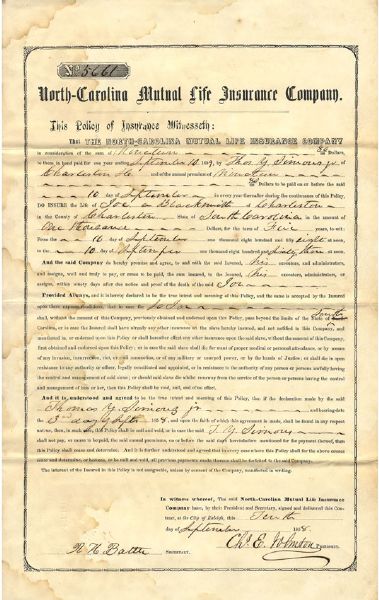 No. 5661
North-Carolina Mutual Life Insurance Company.
This Policy of Insurance Witnesseth:
That THE NORTH-CAROLINA MUTUAL LIFE INSURANCE COMPANY
in consideration of the sum of Nineteen Dollars,
to them in hand paid for one year ending September 10 1859, by Thos Y Simons jr. of
Charleston So Ca and of the annual premium of Nineteen
Dollars to be paid on or before the said
10 day of September in every year thereafter during the continuance of this Policy,
DO INSURE the life of Joe Blacksmith of Charleston
in the County of Charleston State of South Carolina in the amount
of One thousand Dollars, for the term of Five years, to wit:
From the 10 day of September one thousand eight hundred and fifty eight at noon
to the 10 day of September one thousand eight hundred and sixty three at noon.
And the said Company do hereby promise and agree, to and with the said his executors, and administrators,
and assigns, well and truly to pay, or cause to be paid, the sum insured, to the insured, his executors, administrators, or
assigns, within ninety days after due notice and proof of the death of the said Joe
Provided Always, and it is hereby declared to be the true intent and meaning of this Policy, and the same is accepted by the Insured
upon these express conditions, that in case the said
shall, without the consent of this Company, previously obtained and endorsed upon this Policy, pass beyond the limits of the State of South
Carolina, or in case the Insured shall have already any other insurance on the slave hereby insured, and not notified to this Company, and
mentioned in, or endorsed upon this Policy or shall hereafter effect any other insurance upon the said slave, without the consent of this Company,
first obtained and endorsed upon this Policy; or in case the said slave shall die for want of proper medical or personal attendance, or by means
of any invasion, insurrection, riot, civil commotion, or of any military or usurped power, or by the hands of Justice; or shall die in open
resistance to any authority or officer, legally constituted and appointed, or in resistance to the authority of any person or persons lawfully having
the control and management of said slave; or should said slave during the life of the owner or person or persons having the control
and management of him or her, then this Policy shall be void, and of no effect.
And it is understood and agreed to be the true intent and meaning of this Policy, that if the declaration made by the said
Thomas Y. Simons jr and bearing date
the 3d day of Sept 1858, and upon the faith of which this agreement is made, shall be found in any respect
untrue, then, in such case, this Policy shall be null and void, or in case the said T. Y. Simons
shall not pay, or cause to be paid, the said annual premiums, on or before the said days hereinbefore mentioned for the payment thereof, then
this Policy shall cease and determine. And it is further understood and agreed that in every case where this Policy shall for the above causes
cease and determine, or become, or be null and void, all previous payments made thereon shall be forfeited to the said Company.
The interest of the Insured in this Policy is not assignable, unless by consent of the Company, manifested in writing.
In witness whereof, The said NORTH-CAROLINA MUTUAL LIFE INSURANCE
COMPANY have, by their President and Secretary, signed and delivered this Contract,
at the City of Raleigh, this Tenth
day of September 1858.
R. H. Battle SECRETARY. Chs. E. Johnson PRESIDENT.